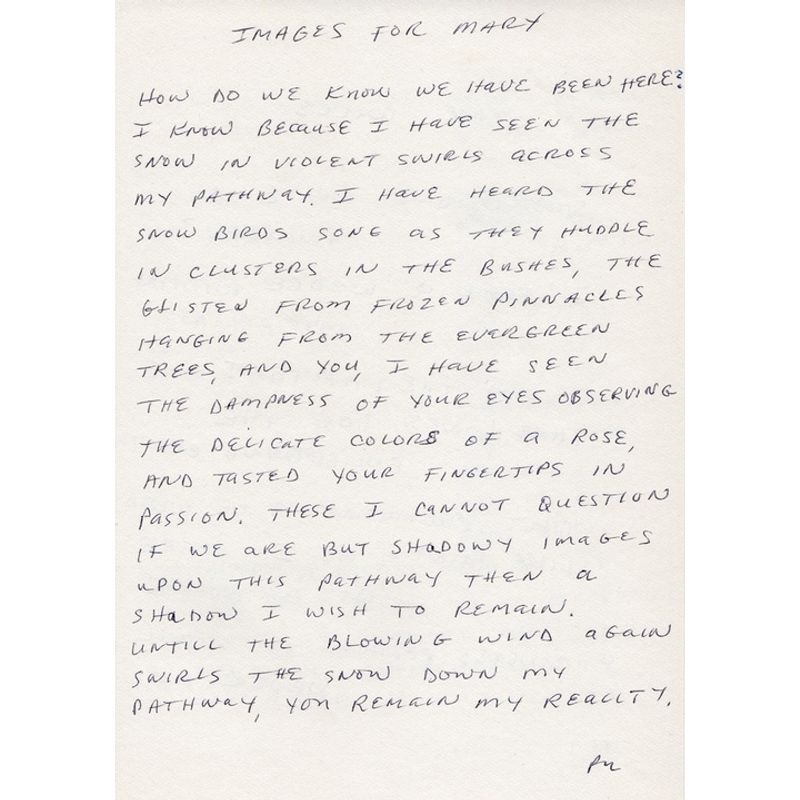 IMAGES FOR MARY
HOW DO WE KNOW WE HAVE BEEN HERE?
I KNOW BECAUSE I HAVE SEEN THE
SNOW IN VIOLENT SWIRLS ACROSS
MY PATHWAY. I HAVE HEARD THE
SNOW BIRDS SONG AS THEY HUDDLE
IN CLUSTERS IN THE BUSHES, THE
GLISTEN FROM FROZEN PINNACLES
HANGING FROM THE EVERGREEN
TREES, AND YOU, I HAVE SEEN
THE DAMPNESS OF YOUR EYES OBSERVING
THE DELICATE COLORS OF A ROSE,
AND TASTED YOUR FINGERTIPS IN
PASSION. THESE I CANNOT QUESTION
IF WE ARE BUT SHADOWY IMAGES
UPON THIS PATHWAY THEN A
SHADOW I WISH TO REMAIN.
UNTILL THE BLOWING WIND AGAIN
SWIRLS THE SNOW DOWN MY
PATHWAY, YOU REMAIN MY REALITY.